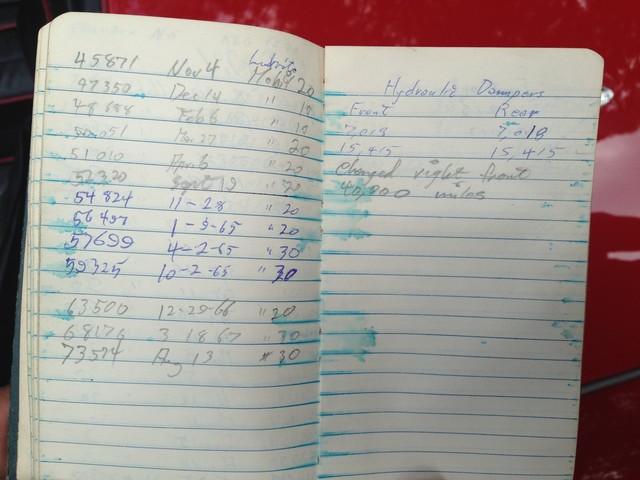 45871 Nov 4 Mobil 20
47350 Dec 14 " 10
48688 Feb 6 " 10
50,051 Mar 27 " 20
51010 April 6 " 20
52320 Sept 19 " 20
54824 11-28 " 20
56497 1-5-65 " 20
57699 4-2-65 " 30
59325 10-2-65 " 30
63500 12-29-66 " 20
68176 3 18 67 " 30
73574 Aug 13 " 30
Hydraulic Dampers
Front Rear
7,018 7,018
15,415 15,415
changed right front
40,000 miles